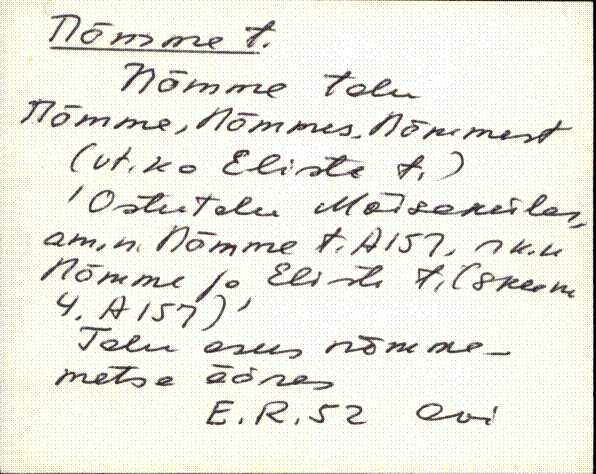 Nõmme t.
Nõmme talu
Nõmme, Nõmmes, Nõmmest
(vt. ka Eliste t.)
'Ostutalu Mõisakülas,
am.n. Nõmme t. A157, rk.n
Nõmme ja Eliste t. (skeem
4. A 157)'
Talu asus nõmme-
metsa ääres
E.R.52 Avi